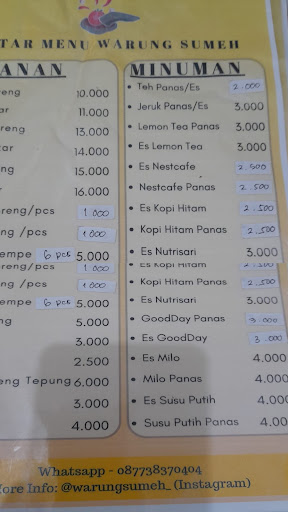 TAR MENU WARUNG SUMEH
ANAN
eng 10.000
ar 11.000
reng 13.000
ar 14.000
ng 15.000
r 16.000
reng/pcs 1.000
ng /pcs 1.000
empe 6 pcs 5.000
oreng/pcs 1.000
ng /pcs 1.000
empe 6 pcs 5.000
ng 5.000
3.000
2.500
eng Tepung 6.000
3.000
4.000
MINUMAN
• Teh Panas/Es 2.000
• Jeruk Panas/Es 3.000
• Lemon Tea Panas 3.000
• Es Lemon Tea 3.000
• Es Nestcafe 2.500
• Nestcafe Panas 2.500
• Es Kopi Hitam 2.500
• Kopi Hitam Panas 2.500
• Es Nutrisari 3.000
• Es Kopi Hitam 2.500
• Kopi Hitam Panas 2.500
• Es Nutrisari 3.000
• GoodDay Panas 3.000
• Es GoodDay 3.000
• Es Milo 4.000
• Milo Panas 4.000
• Es Susu Putih 4.000
• Susu Putih Panas 4.000
Whatsapp - 087738370404
More Info: @warungsumeh_ (Instagram)